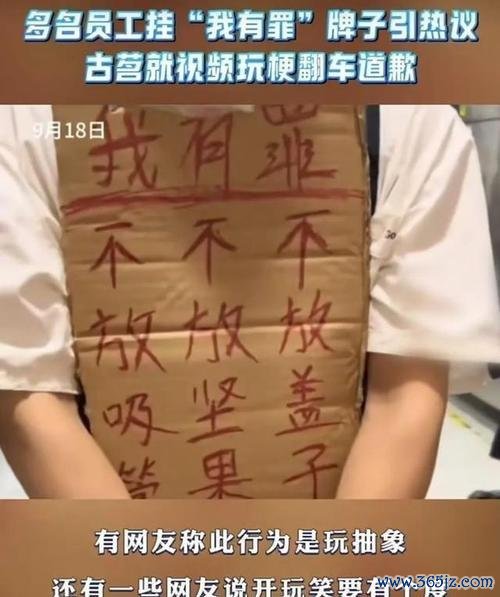 多名员工挂“我有罪”牌子引热议
古茗就视频玩梗翻车道歉
9月18日
我有罪
不不不
放放放
吸坚盖
管果子
有网友称此行为是玩抽象
还有一些网友说开玩笑要有个度
www.365jz.com